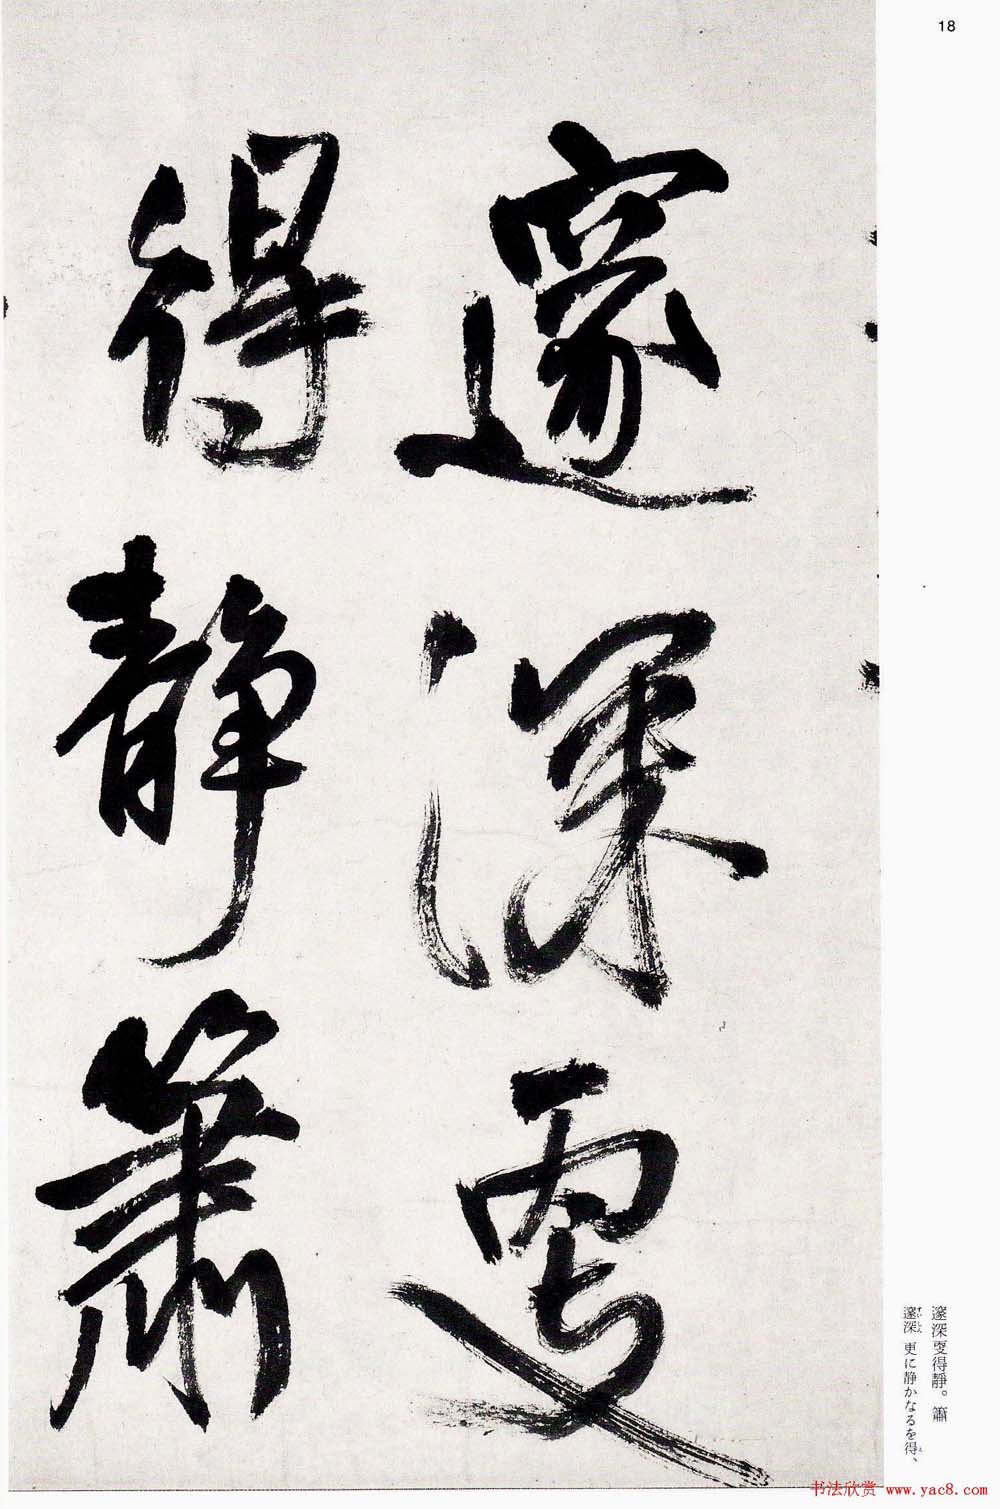 18
邃深㪅
得靜簫
邃深㪅得靜。簫
邃深更に静かなるを得、
すいしん
え
书法欣赏 www.yac8.com